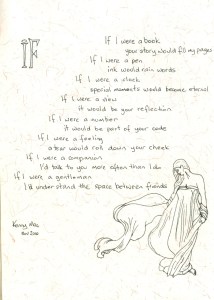 IF
If I were a book
your story would fill my pages
If I were a pen
ink would rain words
If I were a clock
special moments would become eternal
If I were a view
it would be your reflection
If I were a number
it would be part of your code
If I were a feeling
a tear would roll down your cheek
If I were a companion
I'd talk to you more often than I do
If I were a gentleman
I'd understand the space between friends
Kenny